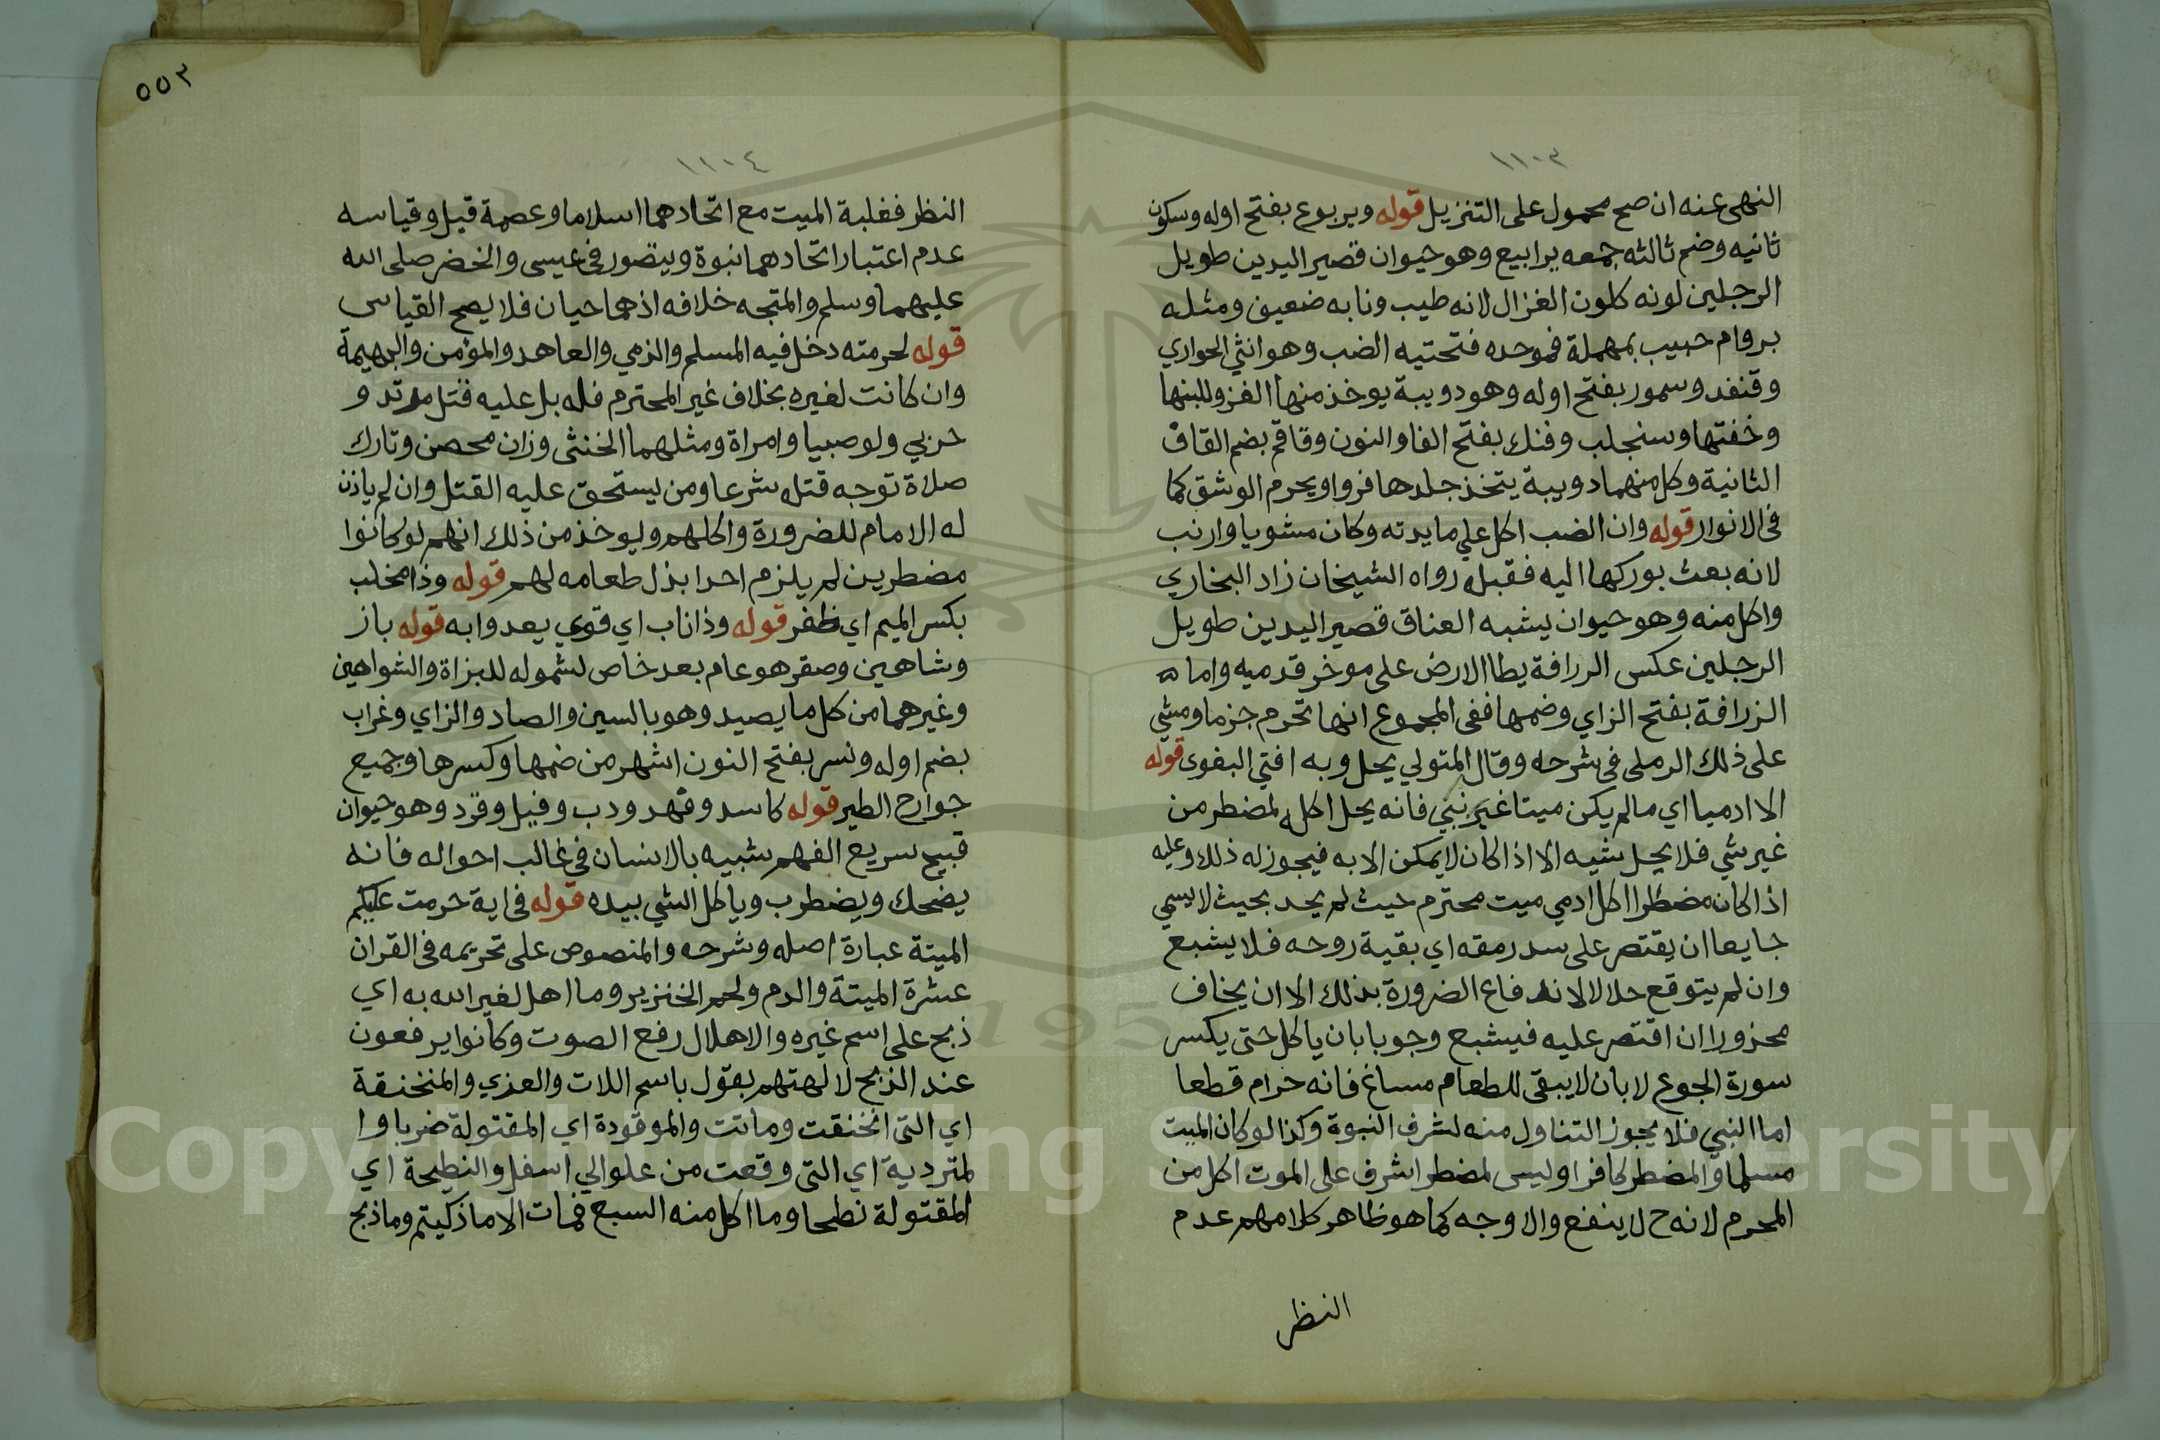 ١١٠٣
النهى عنه ان صح محمول على التنزيل قوله ويربوع بفتح اوله وسكون
ثانيه وضم ثالثه جمعه يرابيع وهو حيوان قصير اليدين طويل
الرجلين لونه كلون الغزال لانه طيب ونابه ضعيف ومثله
بر وام حبيب بمهملة فموحده فتحتيه الضب وهو انثي الحواري
وقنفد وسمور بفتح اوله وهو دويبة يوخذ منها الفرو للبنها
وخفتها وسنجلب وفنك بفتح الفا والنون وقاقم بضم القاف
الثانية وكل منهما دويبة يتخذ جلدها فروا ويحرم الوشق كما
فى الانوار قوله وان الضب اكل علي مايدته وكان مشويا وارنب
لانه بعث بوركها اليه فقبله رواه الشيخان زاد البخاري
واكل منه وهو حيوان يشبه العناق قصير اليدين طويل
الرجلين عكس الزرافة يطا الارض على موخر قدميه واما
الزرافة بفتح الزاي وضمها ففى المجموع انها تحرم جزما ومشي
على ذلك الرملى فى شرحه وقال المتولي يحل وبه افتي البغوى قوله
الا ادميا اي مالم يكن ميتا غير نبي فانه يحل اكله لمضطر من
غير شي فلا يحل شيه الا اذا كان لا يمكن الا به فيجوز له ذلك وعليه
اذا كان مضطرا اكل ادمي ميت محترم حيث لم يجد بحيث لا يسمي
جايعا ان يقتصر على سد رمقه اي بقية روحه فلا يشبع
وان لم يتوقع حلالا لاندفاع الضرورة بذلك الا ان يخاف
محذورا ان اقتصر عليه فيشبع وجوبا بان ياكل حتى يكسر
سورة الجوع لا بان لا يبقى للطعام مساغ فانه حرام قطعا
اما النبي فلا يجوز التناول منه لشرف النبوة وكذا لو كان الميت
مسلما والمضطر كافرا وليس لمضطر اشرف على الموت اكل من
المحرم لانه ح لا ينفع والاوجه كما هو ظاهر كلامهم عدم
النظر
٥٥٣
١١٠٤
النظر فغلبة الميت مع اتحادهما اسلاما وعصمة قيل وقياسه
عدم اعتبار اتحادهما نبوة ويتصور فى عيسى والخضر صلى الله
عليهما وسلم والمتجه خلافه اذ هما حيان فلا يصح القياس
قوله لحرمته دخل فيه المسلم والذمي والعاهد والمؤمن والبهيمة
وان كانت لغيره بخلاف غير المحترم فله بل عليه قتل مرتد و
حربي ولو صبيا وامراة ومثلهما الخنثى وزان محصن وتارك
صلاة توجه قتله شرعا ومن يستحق عليه القتل وان لم ياذن
له الامام للضرورة واكلهم ويوخذ من ذلك انهم لو كانوا
مضطرين لم يلزم احدا بذل طعامه لهم قوله وذا مخلب
بكسر الميم اي ظفر قوله وذا ناب اي قوي يعدوا به قوله باز
وشاهين وصقر هو عام بعد خاص لشموله للبزاة والشواهين
وغيرهما من كل ما يصيد وهو بالسين والصاد والزاي وغراب
بضم اوله ونسر بفتح النون اشهر من ضمها وكسرها وجميع
جوارح الطير قوله كاسد وفهد ودب وفيل وقرد وهو حيوان
قبيح سريع الفهم شبيه بالانسان فى غالب احواله فانه
يضحك ويضطرب وياكل الشي بيده قوله فى اية حرمت عليكم
الميتة عبارة اصله وشرحه والمنصوص على تحريمه فى القران
عشرة الميتة والدم ولحم الخنزير وما اهل لغير الله به اي
ذبح على اسم غيره والاهلال رفع الصوت وكانوا يرفعون
عند الذبح لالهتهم بقول باسم اللات والعزي والمنخنقة
اي التى انخنقت وماتت والموقودة اي المقتولة ضربا وا
لمتردية اي التى وقعت من علو الي اسفل والنطيحة اي
المقتولة نطحا وما اكل منه السبع فمات الا ما ذكيتم وما ذبح
Copyright © King Saud University
1957